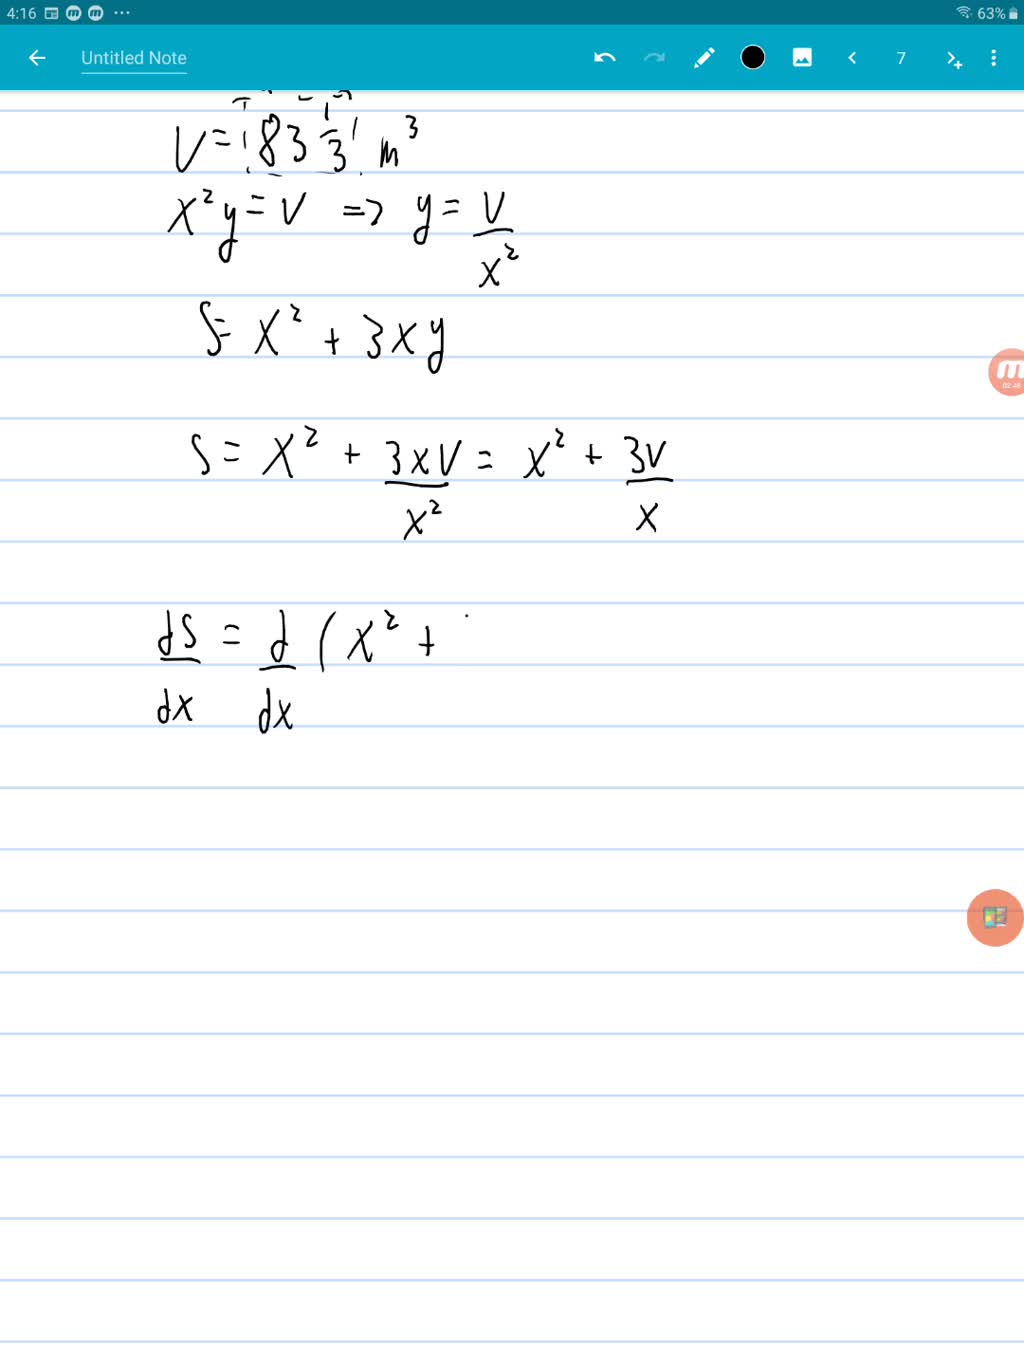 4:16 63%
Untitled Note 7
V = 83 1/3 m³
x²y = V => y = V/x²
S = x² + 3xy
S = x² + 3xV/x² = x² + 3V/x
dS/dx = d/dx (x² +